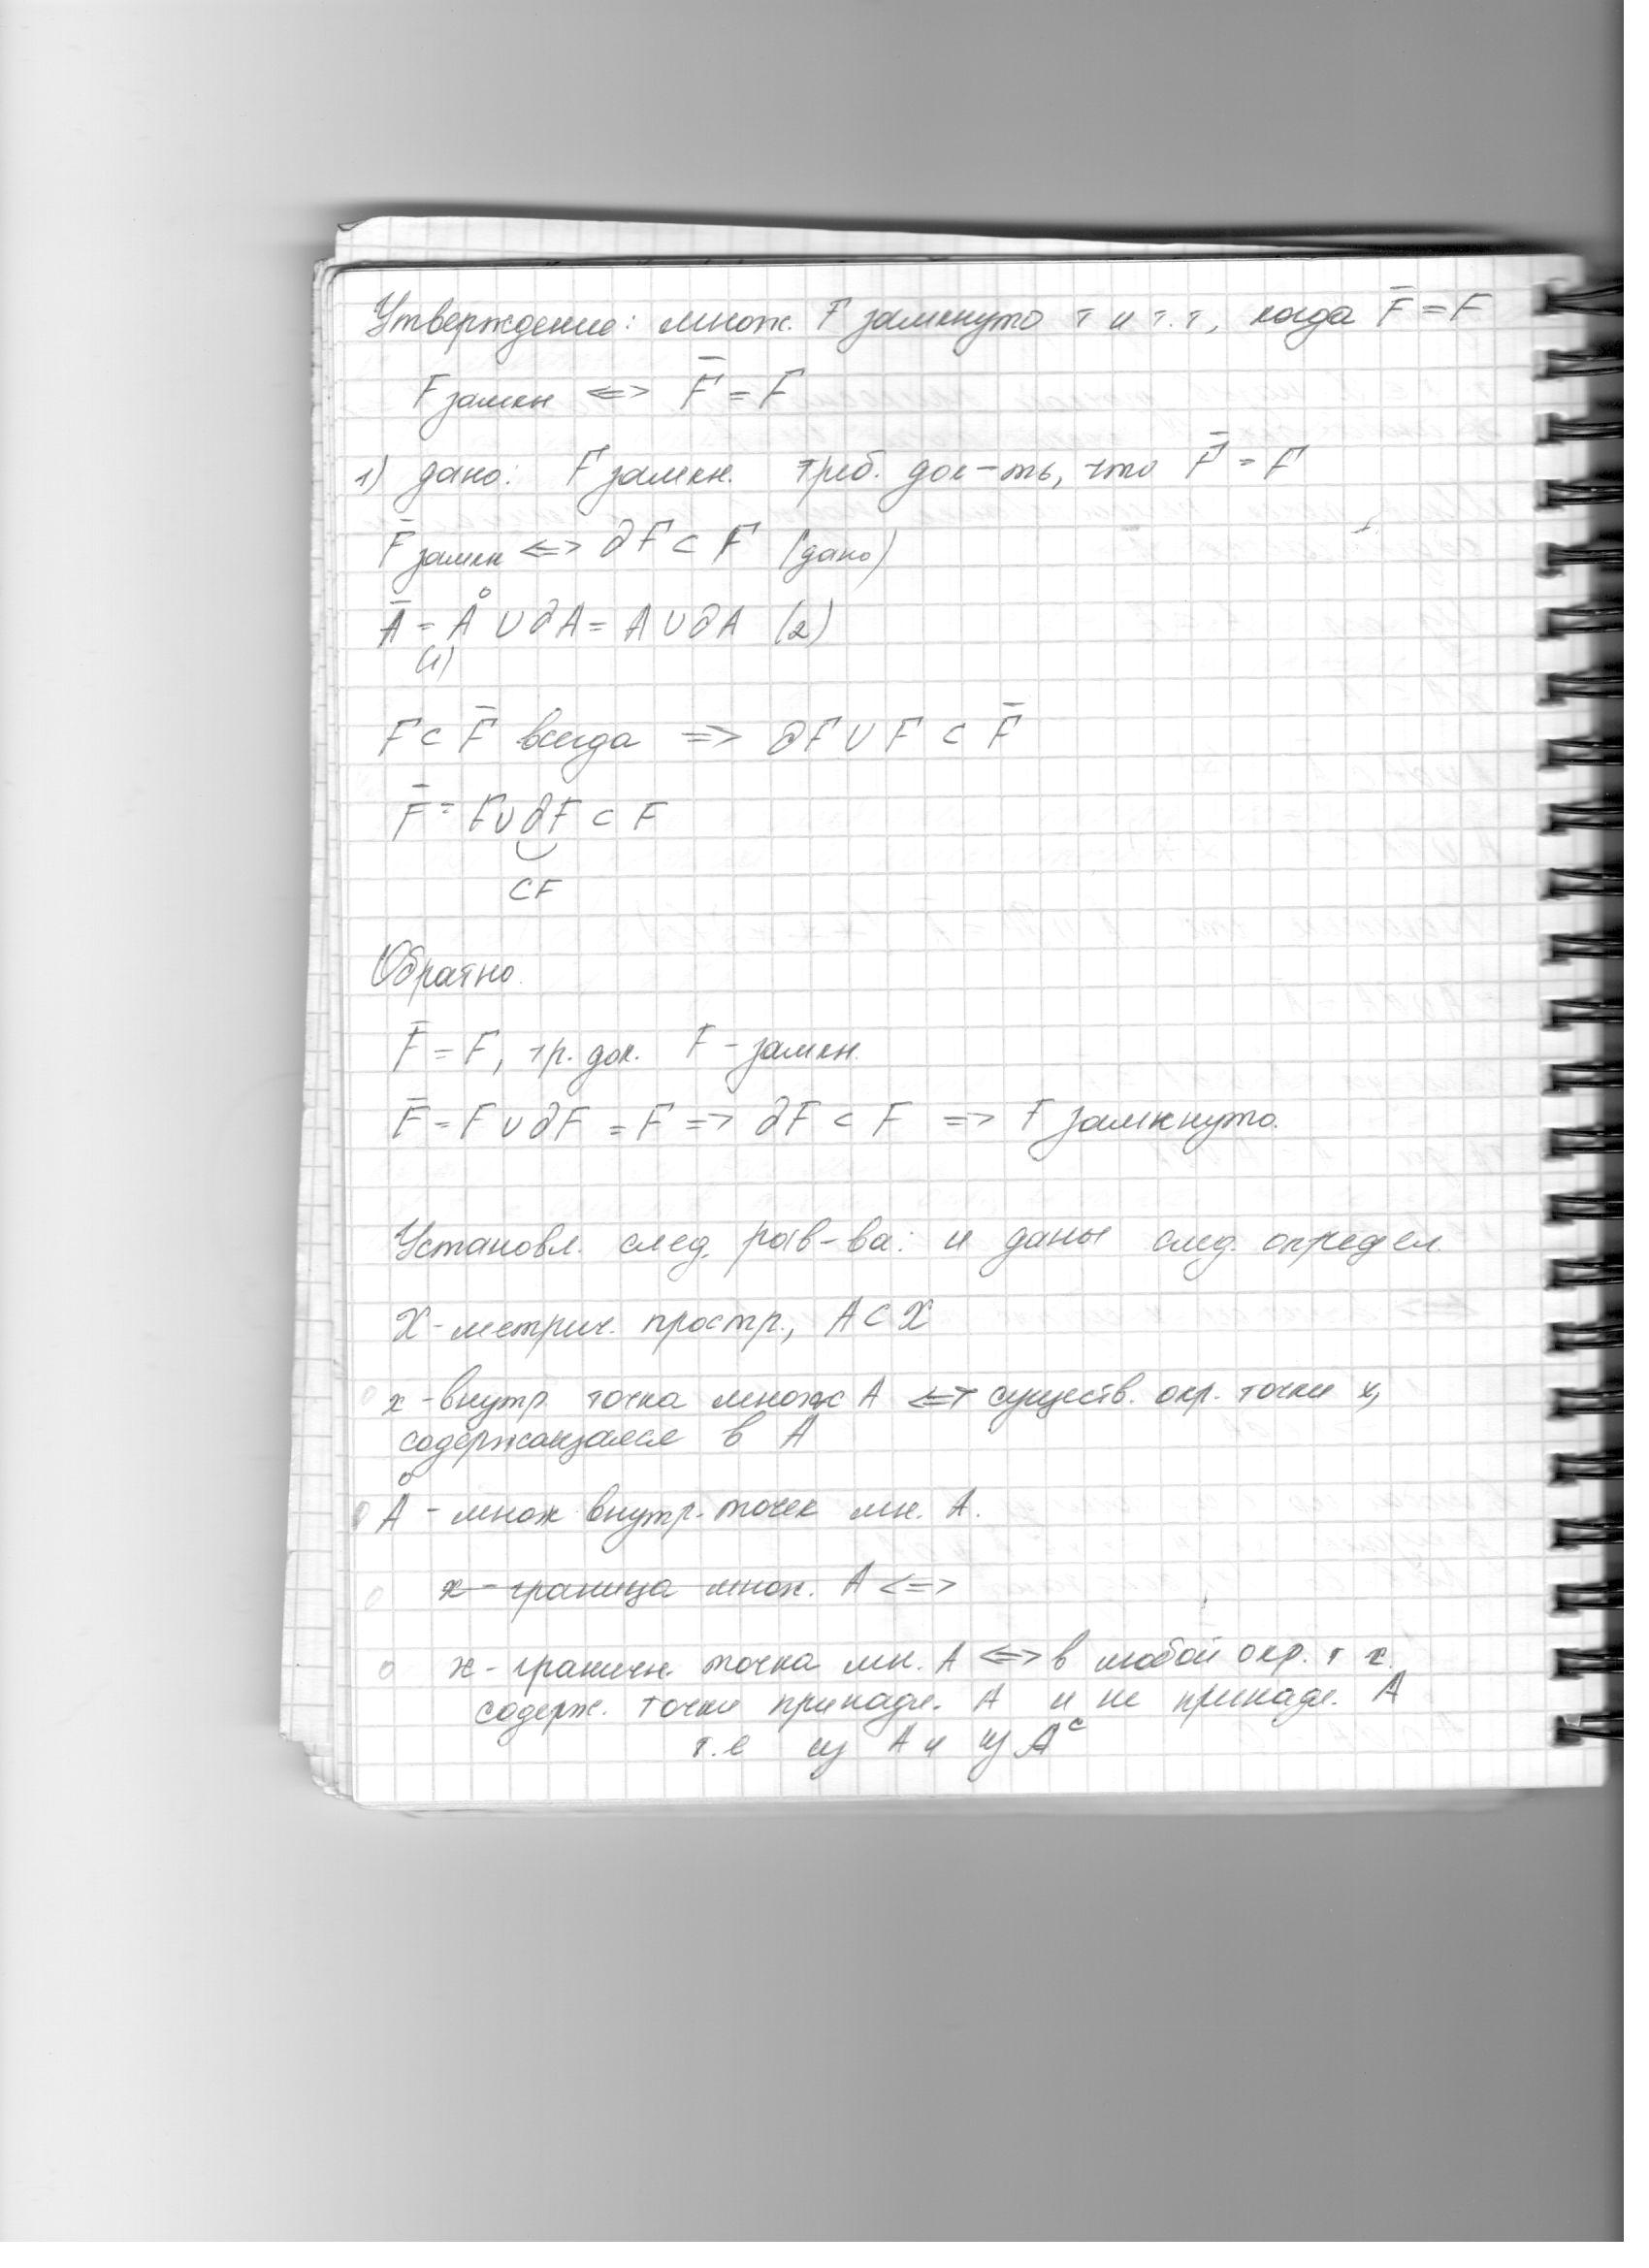 Утверждение: множ. F замкнуто т и т.т, когда F̄ = F
F замкн <=> F̄ = F
1) дано: F замкн. треб. док-ть, что F̄ = F
F̄ замкн <=> ∂F ⊂ F (дано)
Ā = Å ∪ ∂A = A ∪ ∂A (2)
(1)
F ⊂ F̄ всегда => ∂F ∪ F ⊂ F̄
F̄ = F ∪ ∂F ⊂ F
⊂ F
Обратно.
F̄ = F, тр. док. F - замкн.
F̄ = F ∪ ∂F = F => ∂F ⊂ F => F замкнуто.
Установл. след. рав-ва: и даны след. определ.
X - метрич. простр., A ⊂ X
x - внутр. точка множ A <=> существ. окр. точки x,
содержащаяся в A
Å - множ внутр. точек мн. A.
x - граница множ. A <=>
x - граничн. точка мн. A <=> в любой окр. т x.
содерж. точки принадл. A и не принадл. A
т.е из A и из Aᶜ